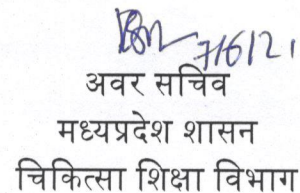 7/6/21
अवर सचिव
मध्यप्रदेश शासन
चिकित्सा शिक्षा विभाग